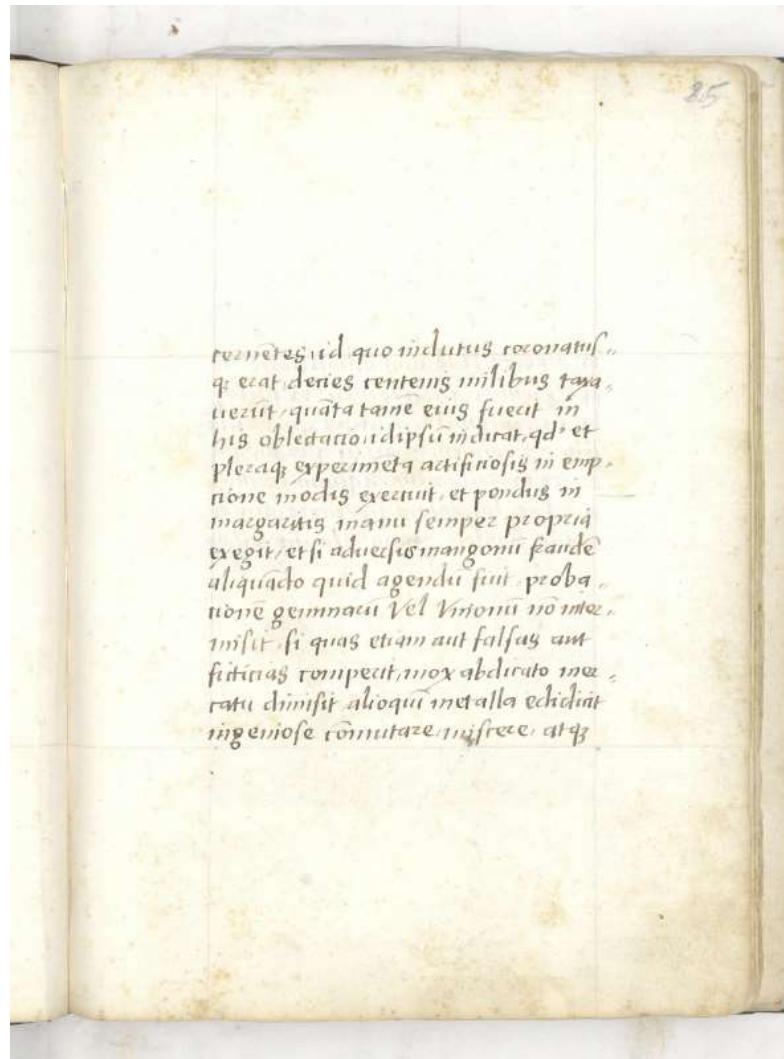 25
cernētes, id quo indutus coronatus„
qꝫ erat, decies centenis milibus taxa„
uerūt, quāta tamē eius fuerit in
his oblectacio, idipsū indicat, qd' et
pleraqꝫ experimēta artificiosis in emp„
cione modis exercuit, et pondus in
margaritis manu semper propria
exegit, et si aduersus mangonū fraudē
aliquādo quid agendū fuit, proba„
tionē gemmarū Vel Vnionū nō inter„
misit, si quas etiam aut falsas aut
ficticias comperit, mox abdicato mer„
catu dimisit, alioqui metalla edidicit
ingeniose cōmutare, miscere, atqꝫ